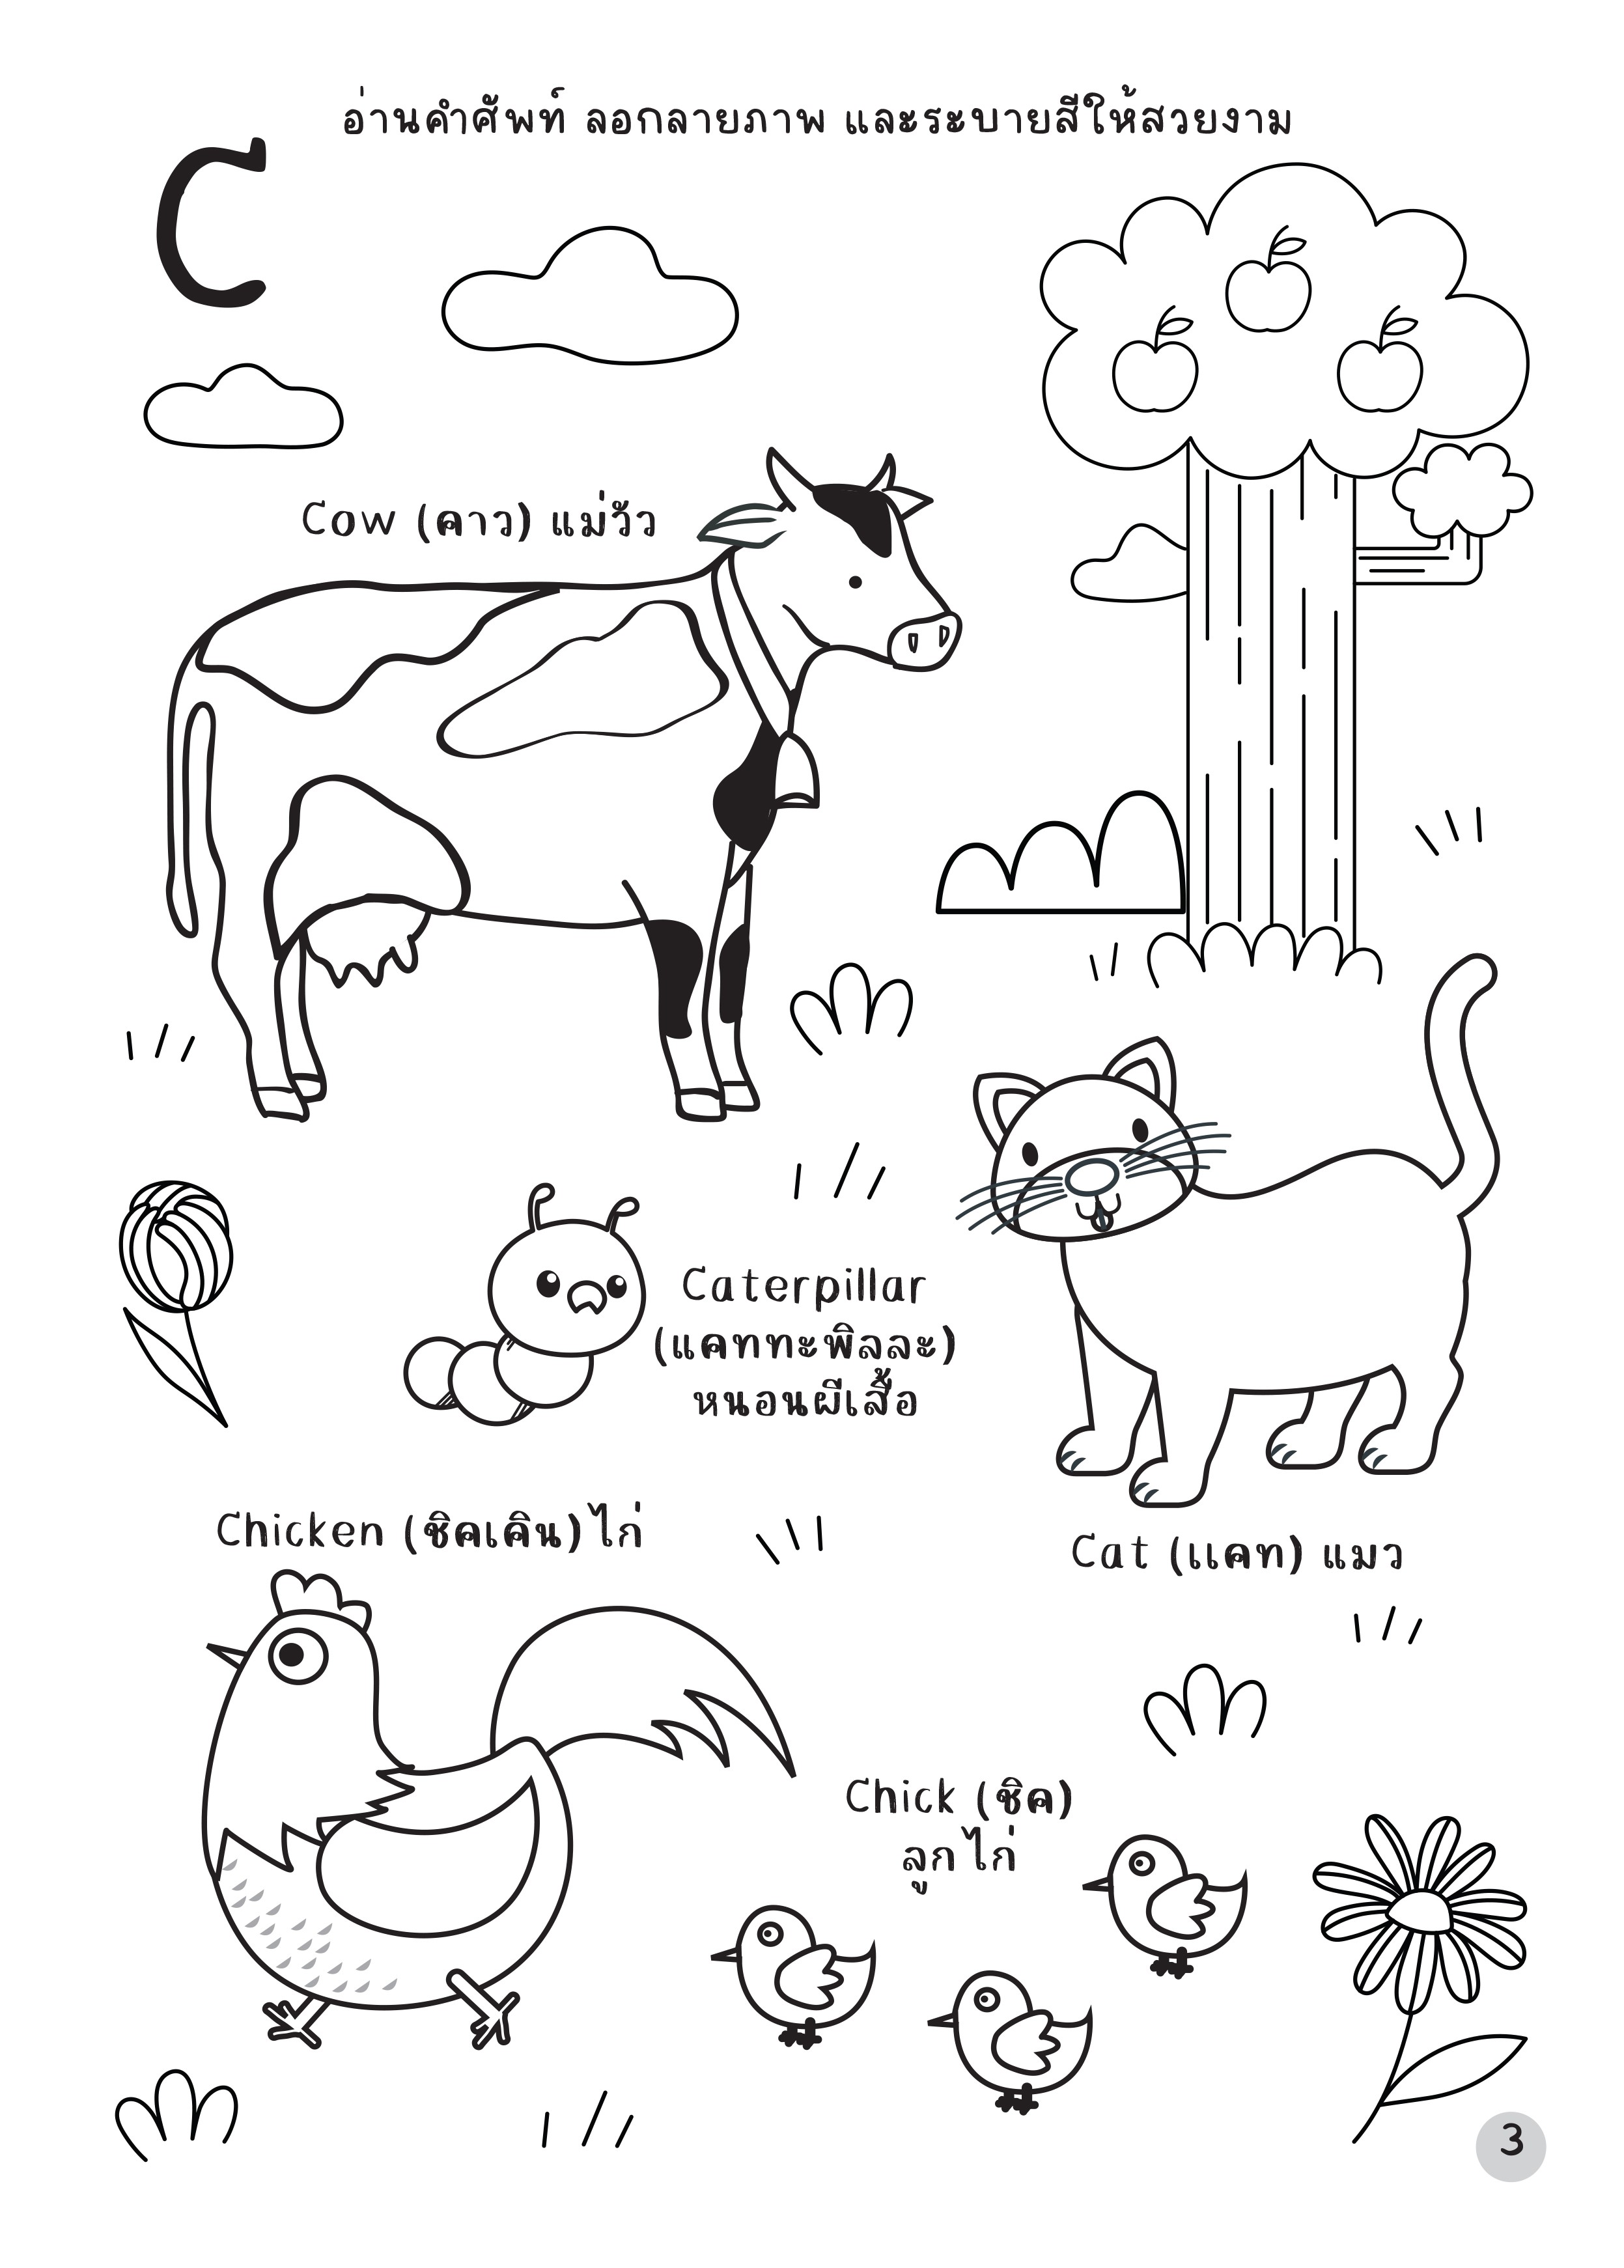 อ่านคำศัพท์ ลอกลายภาพ และระบายสีให้สวยงาม
C
Cow (คาว) แม่วัว
Caterpillar
(แคททะพิลละ)
หนอนผีเสื้อ
Chicken (ชิคเคิน) ไก่
Cat (แคท) แมว
Chick (ชิค)
ลูกไก่
3